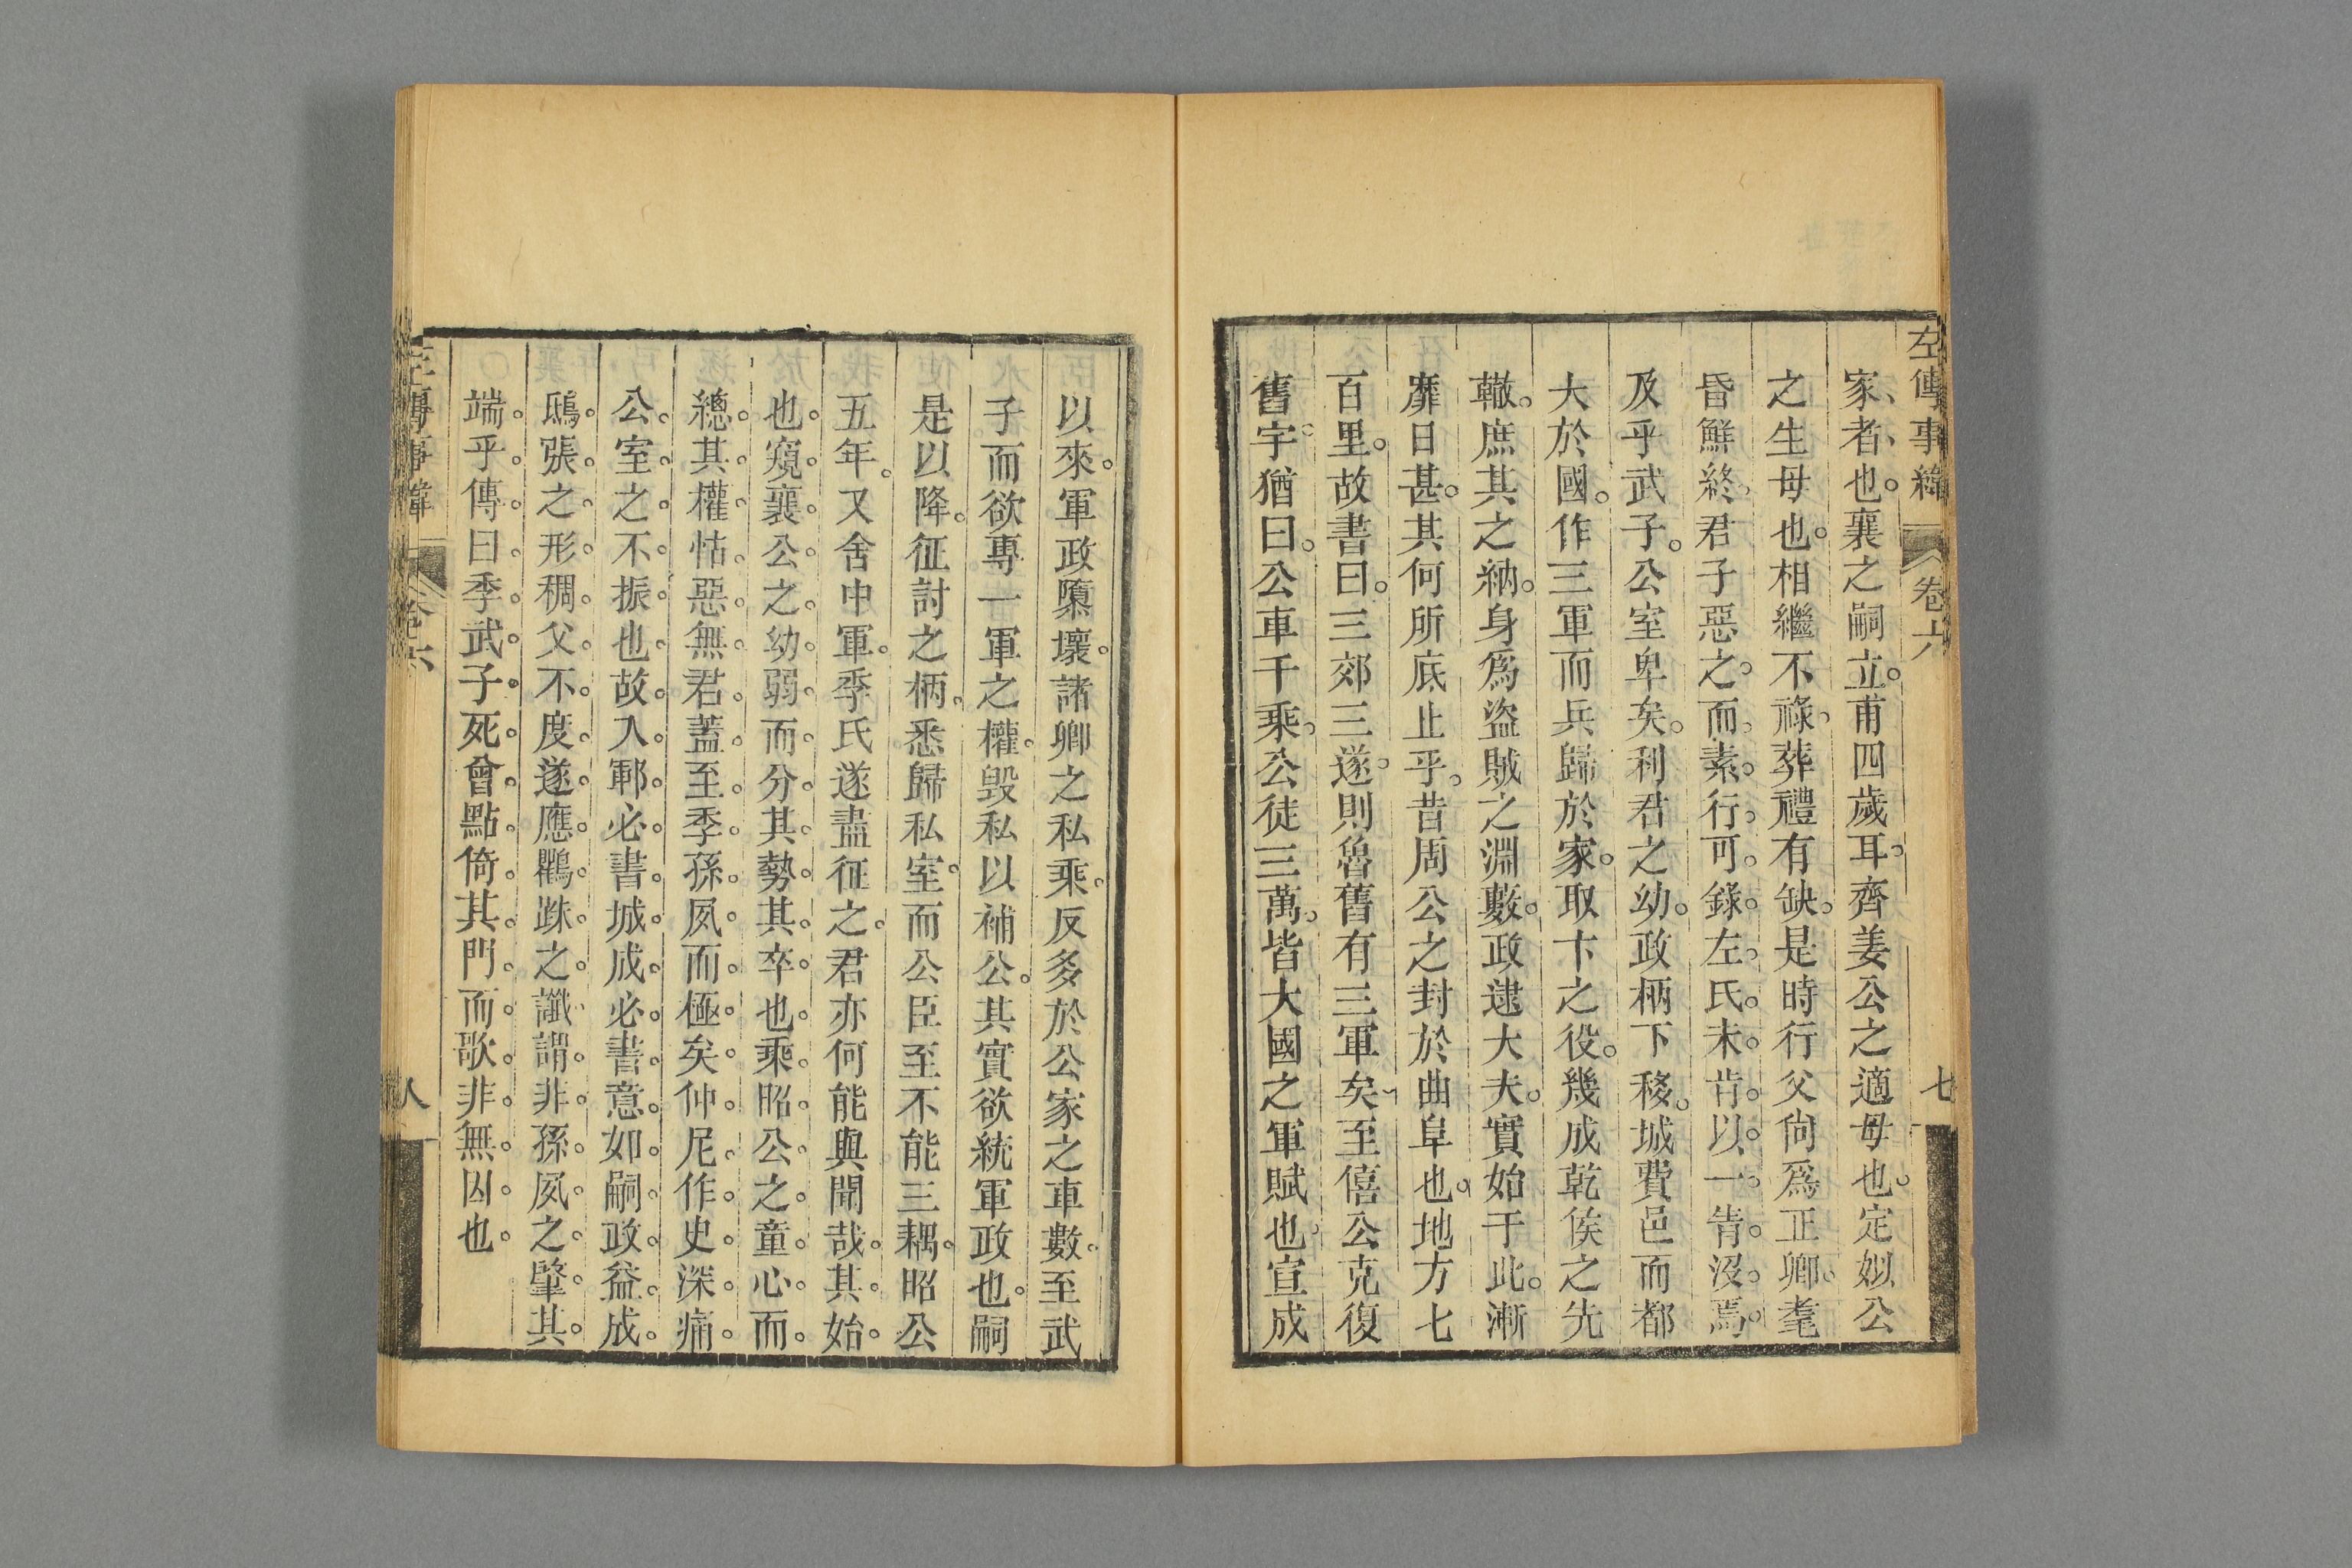 左傳事緯
卷六
七
家者也襄之嗣立甫四歲耳齊姜公之適母也定姒公
之生母也相繼不祿葬禮有缺是時行父尙爲正卿耄
昏鮮終君子惡之而素行可錄左氏未肯以一眚沒焉
及乎武子公室卑矣利君之幼政柄下移城費邑而都
大於國作三軍而兵歸於家取卞之役幾成乾侯之先
轍庶其之納身爲盜賊之淵藪政逮大夫實始于此漸
靡日甚其何所底止乎昔周公之封於曲阜也地方七
百里故書曰三郊三遂則魯舊有三軍矣至僖公克復
舊宇猶曰公車千乘公徒三萬皆大國之軍賦也宣成
以來軍政隳壞諸卿之私乘反多於公家之車數至武
子而欲專一軍之權毀私以補公其實欲統軍政也嗣
是以降征討之柄悉歸私室而公臣至不能三耦昭公
五年又舍中軍季氏遂盡征之君亦何能與聞哉其始
也窺襄公之幼弱而分其勢其卒也乘昭公之童心而
總其權怙惡無君蓋至季孫夙而極矣仲尼作史深痛
公室之不振也故入鄆必書城成必書意如嗣政益成
鴟張之形稠父不度遂應鸜跦之讖謂非孫夙之肇其
端乎傳曰季武子死曾點倚其門而歌非無因也
左傳事緯
卷六
八